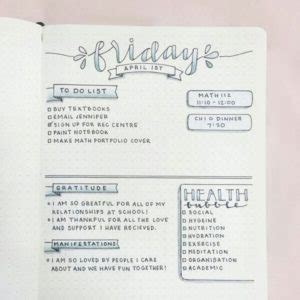 friday
APRIL 1ST
TO DO LIST
BUY TEXTBOOKS
EMAIL JENNIFER
SIGN UP FOR REC CENTRE
PAINT NOTEBOOK
MAKE MATH PORTFOLIO COVER
MATH 112
11:10 - 12:00
CHI O DINNER
7:30
GRATITUDE
I AM SO GREATFUL FOR ALL OF MY
RELATIONSHIPS AT SCHOOL!
I AM THANKFUL FOR ALL THE LOVE
AND SUPPORT I HAVE RECIEVED.
MANIFESTATIONS
I AM SO LOVED BY PEOPLE I CARE
ABOUT AND WE HAVE FUN TOGETHER!
HEALTH
bubble
SOCIAL
HYGIENE
NUTRITION
HYDRATION
EXERCISE
MEDITATION
ORGANISATION
ACADEMIC